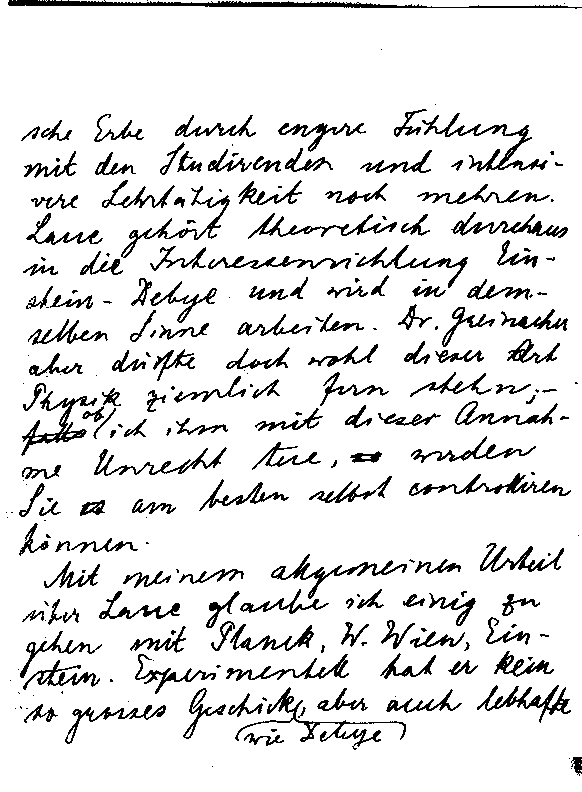 sche Erbe durch engere Fühlung
mit den Studirenden und intensi-
vere Lehrtätigkeit noch mehren.
Laue gehört theoretisch durchaus
in die Interessenrichtung Ein-
stein-Debye und wird in dem-
selben Sinne arbeiten. Dr. Greinacher
aber dürfte doch wohl dieser Art
Physik ziemlich fern stehn;-
falls ob ich ihm mit dieser Annah-
me Unrecht tue, so werden
Sie es am besten selbst controlliren
können.
Mit meinem allgemeinen Urteil
über Laue glaube ich einig zu
gehen mit Planck, W. Wien, Ein-
stein. Experimentell hat er kein
so grosses Geschick, aber auch lebhafte
wie Debye